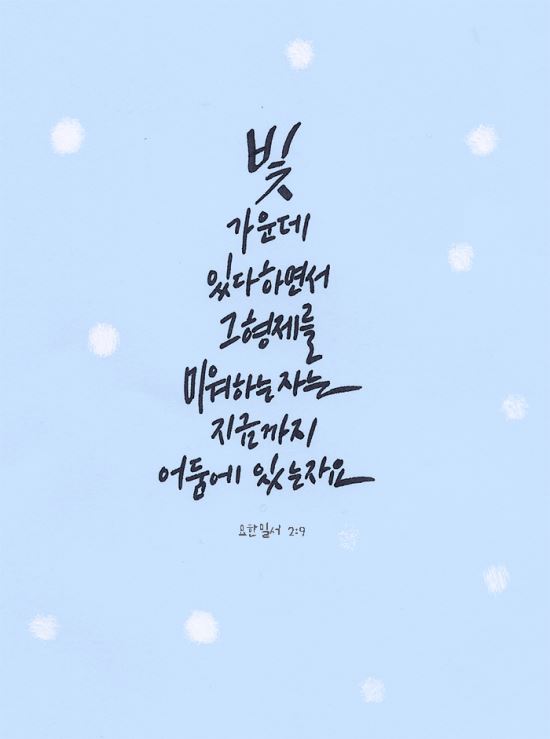 빛
가운데
있다하면서
그형제를
미워하는자는
지금까지
어둠에 있는자요
요한일서 2:9